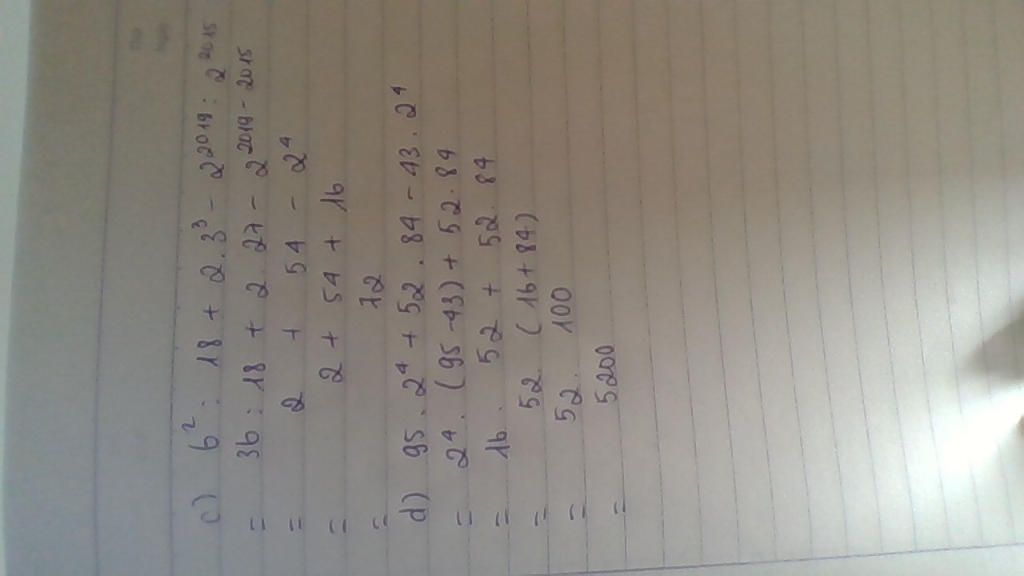 c) 6² : 18 + 2.3³ - 2²⁰¹⁹ : 2²⁰¹⁵
= 36 : 18 + 2. 27 - 2²⁰¹⁹⁻²⁰¹⁵
= 2 + 54 - 2⁴
= 2 + 54 + 16
= 72
d) 95 . 2⁴ + 52 . 84 - 43 . 2⁴
= 2⁴ . (95 - 43) + 52 . 84
= 16 . 52 + 52 . 84
= 52 (16 + 84)
= 52 . 100
= 5200